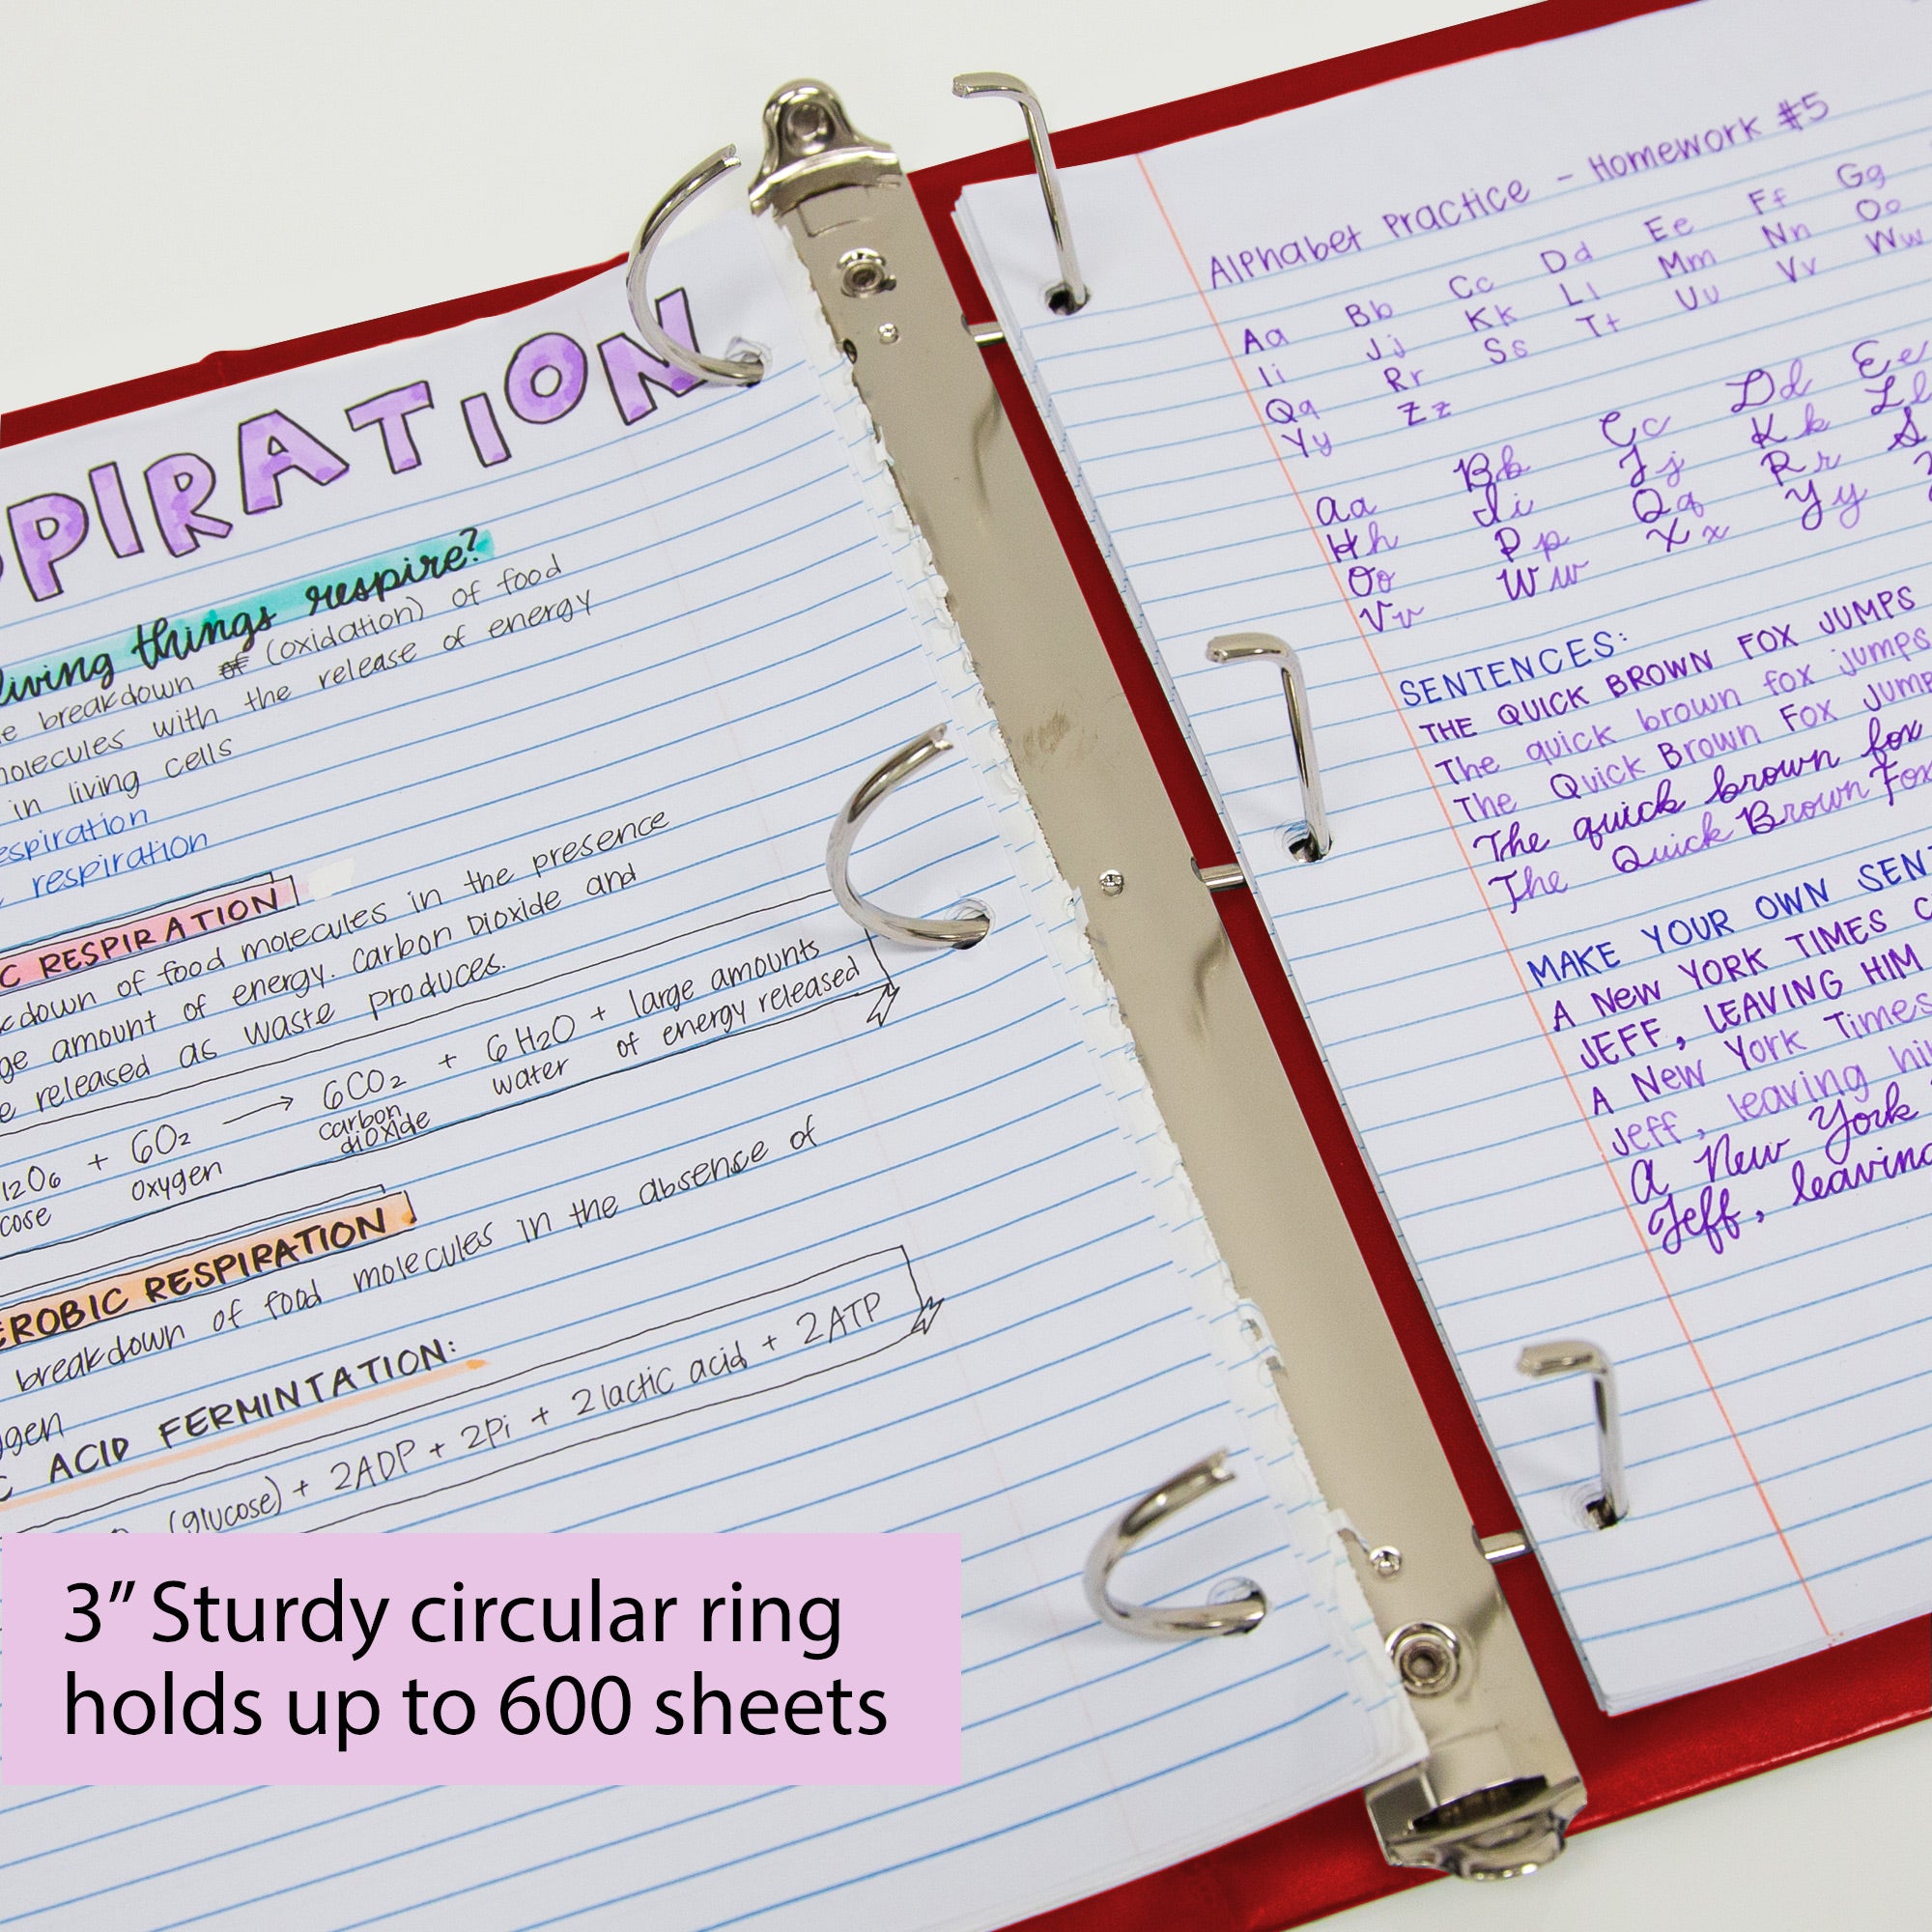 PIRATION
living things respire?
breakdown of (oxidation) of food
molecules with the release of energy
in living cells
respiration
respiration
C RESPIRATION
down of food molecules in the presence
amount of energy. carbon Dioxide and
released as waste produces.
12O6 + 6O2 → 6CO2 + 6H2O + large amounts
oxygen carbon dioxide water of energy released
EROBIC RESPIRATION
breakdown of food molecules in the absence of
C ACID FERMINTATION:
(glucose) + 2ADP + 2Pi + 2 lactic acid + 2ATP
Alphabet Practice - Homework #5
Aa Bb Cc Dd Ee Ff Gg
Ii Jj Kk Ll Mm Nn Oo
Qq Rr Ss Tt Uu Vv Ww
Yy Zz
Aa Bb Cc Dd Ee
Hh Ii Jj Kk Ll
Oo Pp Qq Rr S
Vv Ww Xx Yy
SENTENCES:
THE QUICK BROWN FOX JUMPS
The quick brown fox jumps
The Quick Brown Fox Jump
The quick brown fox
The Quick Brown Fox
MAKE YOUR OWN SENT
A NEW YORK TIMES C
JEFF, LEAVING HIM
A New York Times
Jeff, leaving hi
A New York
Jeff, leaving
3” Sturdy circular ring
holds up to 600 sheets